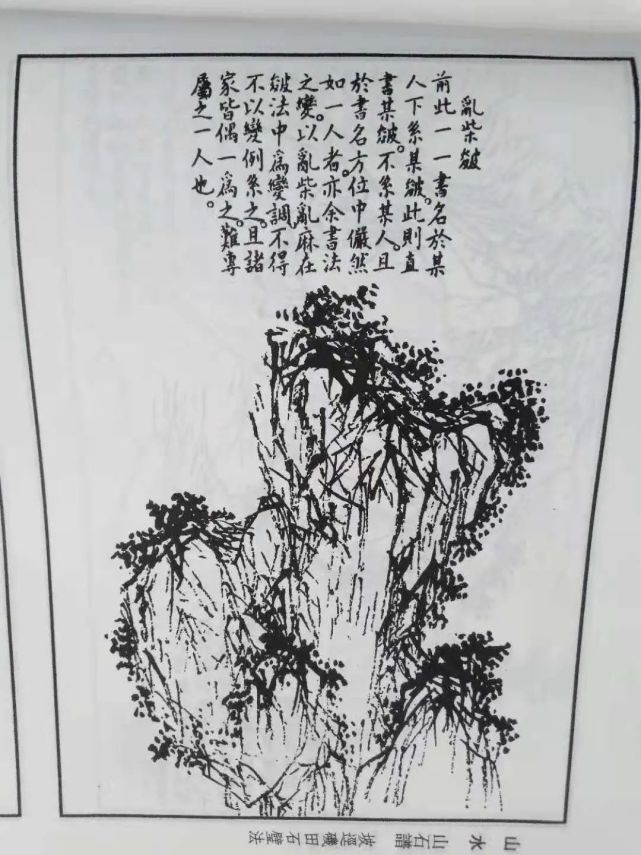 亂柴皴
前此一一書名於某
人下系某皴。此則直
書某皴。不系某人。且
於書名方位中儼然
如一人者。亦余書法
之變。以亂柴亂麻在
皴法中爲變調。不得
不以變例系之。且諸
家皆偶一爲之。難專
屬之一人也。
山水 山石譜 坡逕磯田石壁法